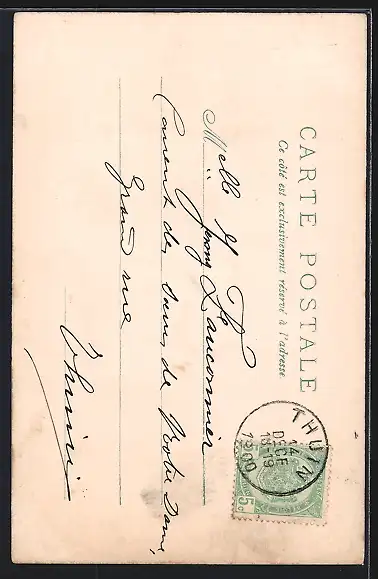 CARTE POSTALE
Ce côté est exclusivement réservé à l'adresse
M'elle
Couvent des Sœurs de Notre Dame,
Grand'rue
Thuin
THUIN
14
DECE
18-19
1900
5c